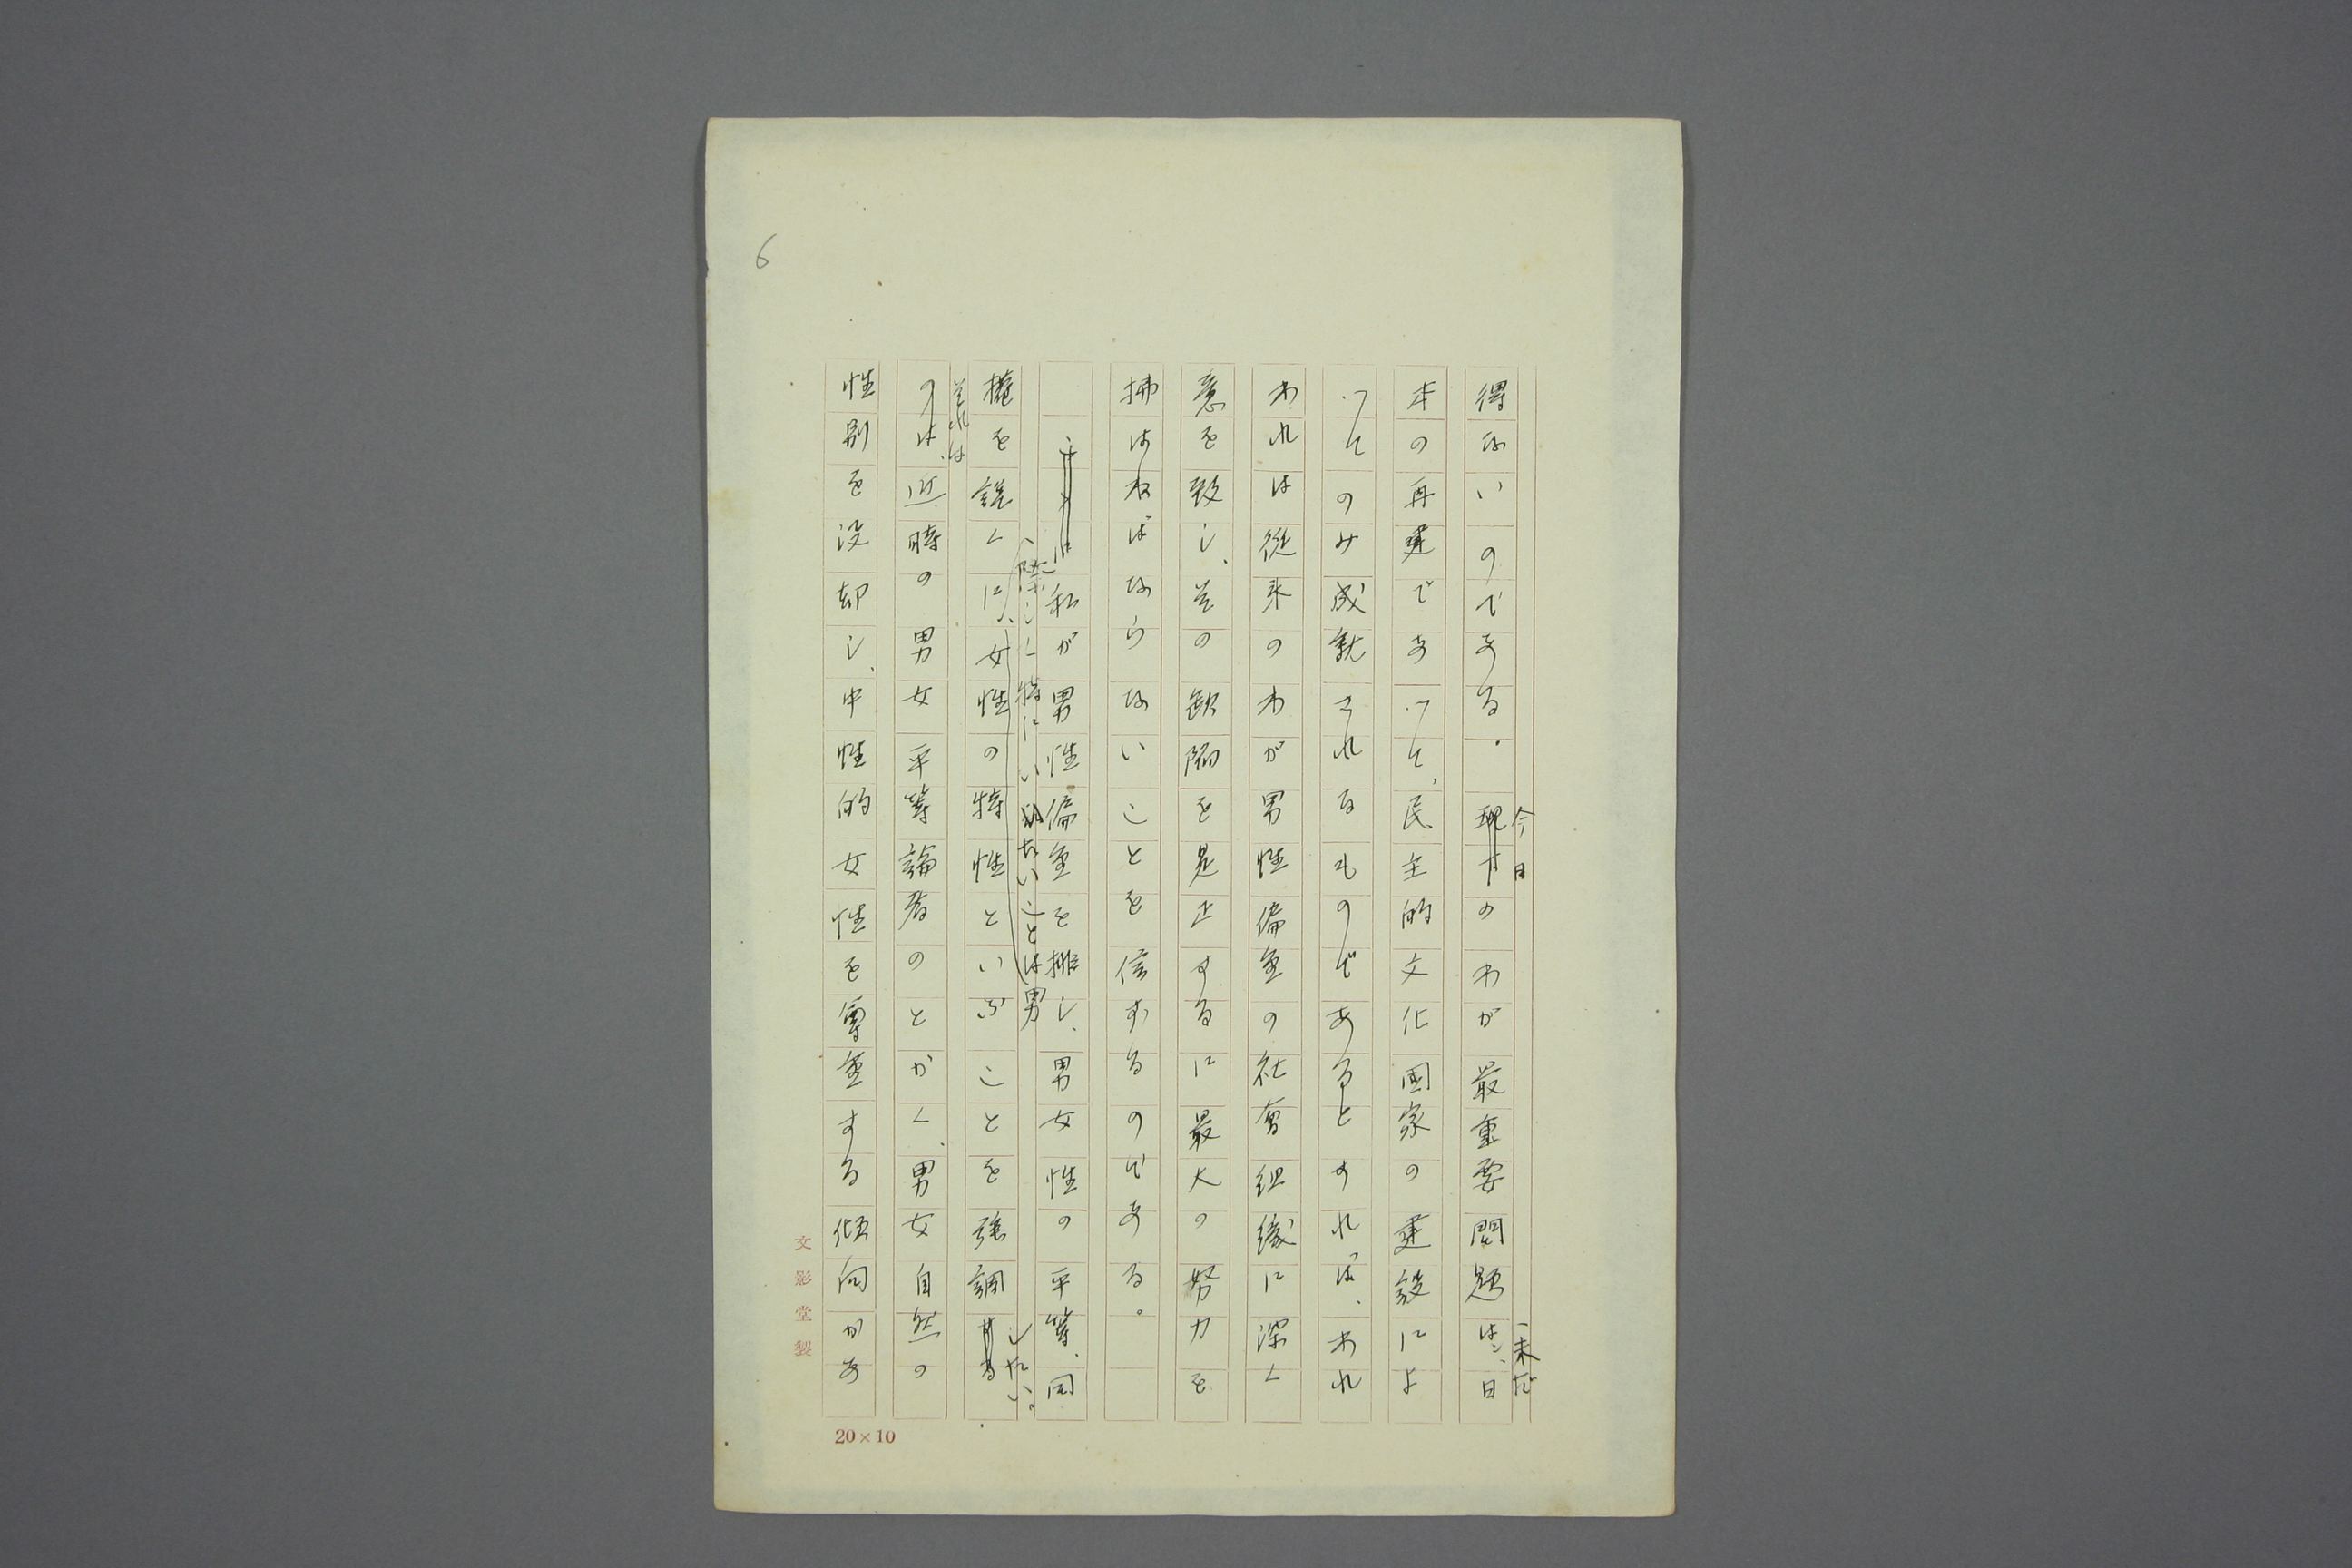 6
今日
未だ
得ないのである。現在のわが最重要問題は、日
本の再建であって、民主的文化国家の建設によ
ってのみ成就されるものであるとすれば、われ
われは従来のわが男性偏重の社会組織に深く
意を致し、其の欠陥を是正するに最大の努力を
拂はねばならないことを信ずるのである。
私が男性偏重を排し、男女性の平等、同
際して特にいひたいことは男
したい。
権を説くに、女性の特性といふことを強調する
それは
のは、近時の男女平等論者のとかく、男女自然の
性別を没却し、中性的女性を尊重する傾向があ
文影堂製
20×10